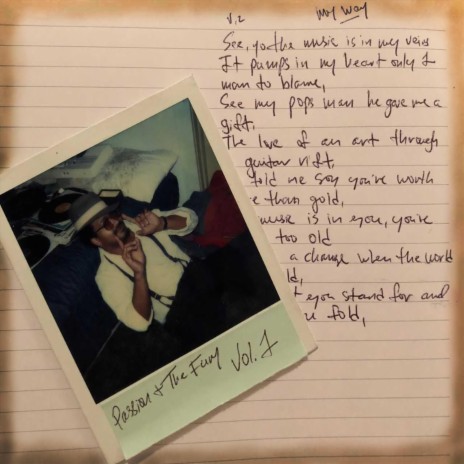 V.2 My Way
See, yo the music is in my veins
It pumps in my heart only 1
man to blame,
See my pops man he gave me a
gift,
The love of an art through
guitar riff,
told me son you're worth
than gold,
music is in you, you're
too old
a change when the world
ld,
t you stand for and
u fold,
Passion & The Fury
Vol. 1